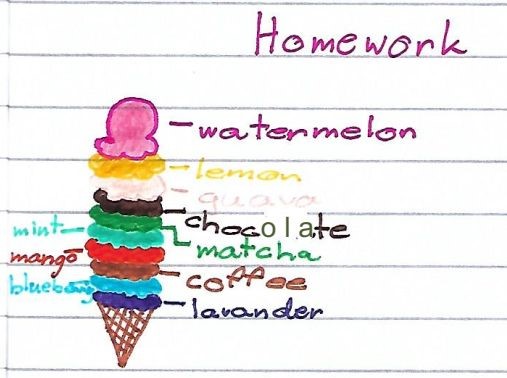 Homework
watermelon
lemon
guava
chocolate
mint
matcha
mango
coffee
blueberry
lavander